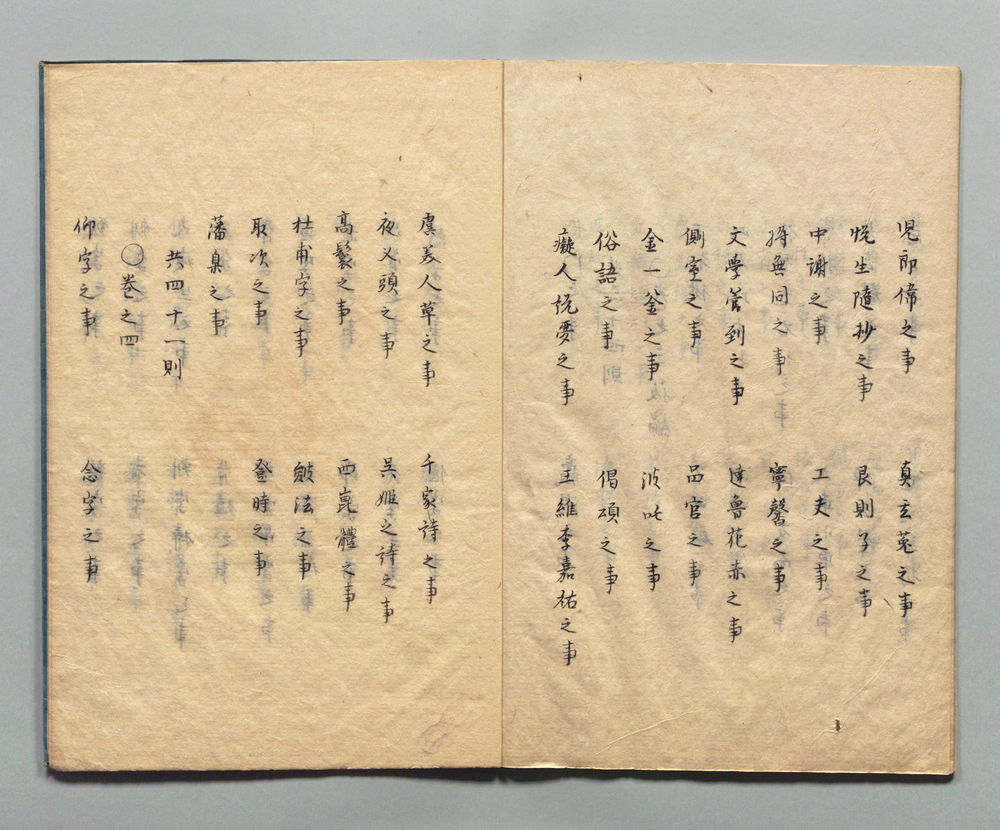 児郎偉之事
真玄菟之事
悦生隨抄之事
艮則子之事
中謝之事
工夫之事
将無同之事
寧馨之事
文學管到之事
達魯花赤之事
側室之事
品官之事
金一釜之事
波吒之事
俗語之事
偈頌之事
癡人説夢之事
王維李嘉祐之事
虞美人草之事
千家詩之事
夜叉頭之事
呉姫之詩之事
高鬟之事
西崑體之事
杜甫字之事
皴法之事
取次之事
登時之事
藩臭之事
共四十一則
○巻之四
仰字之事
念字之事